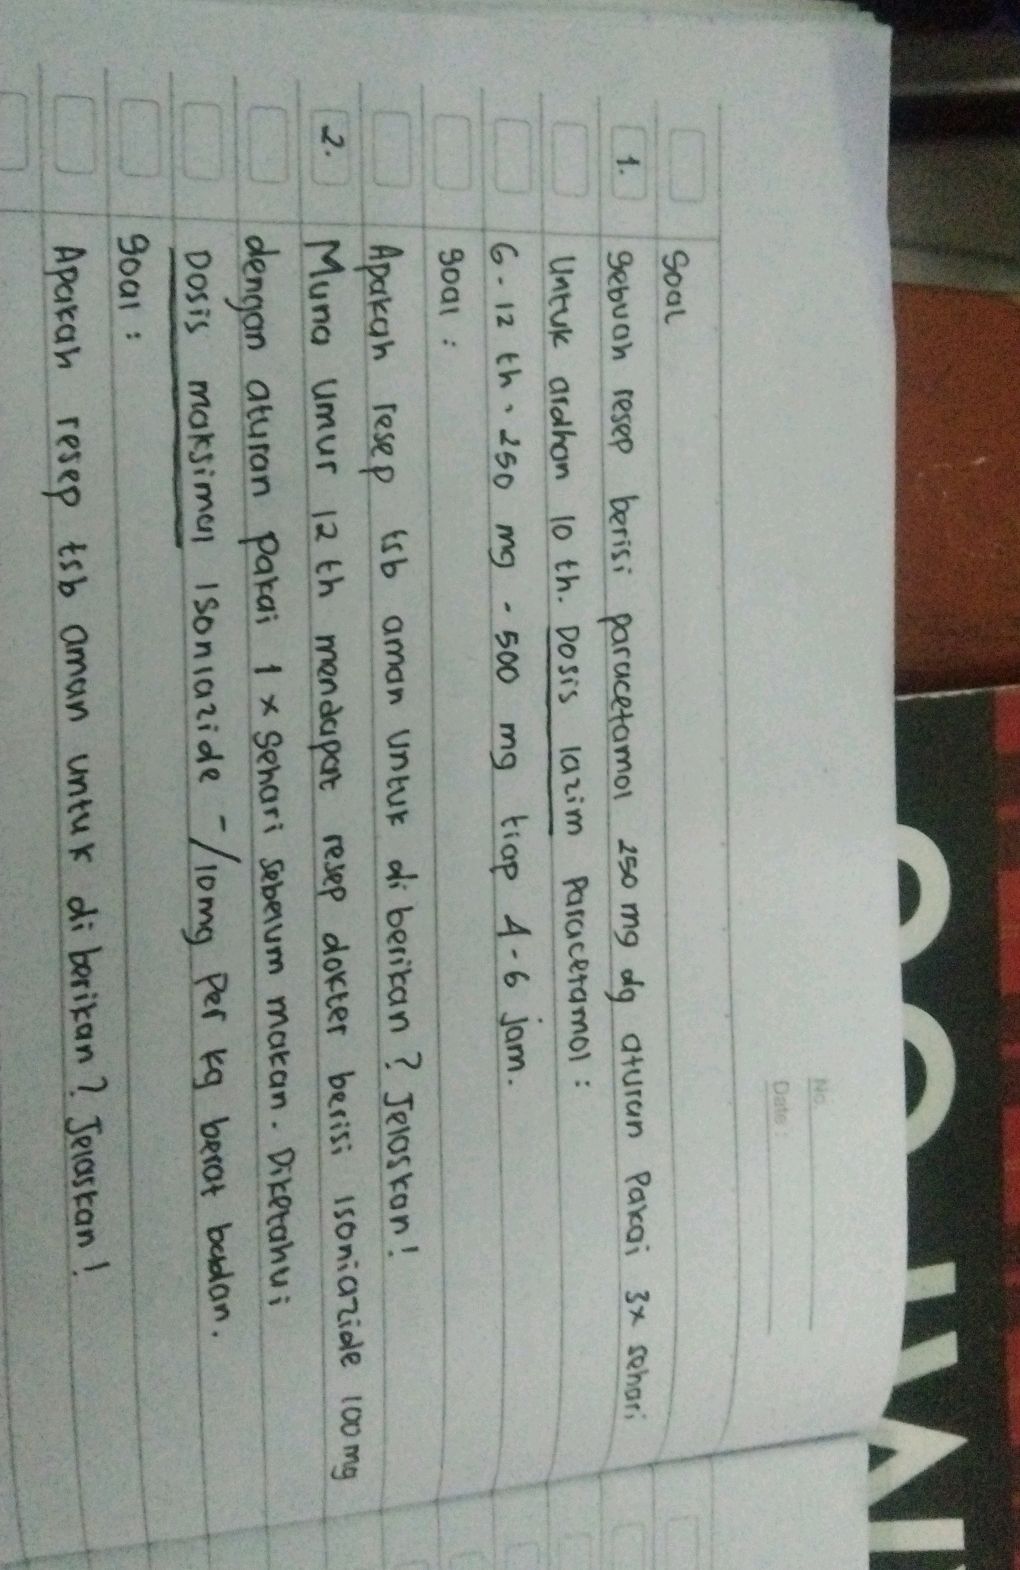 No.
Date :
Soal
1. Sebuah resep berisi paracetamol 250 mg dg aturan pakai 3x sehari
Untuk ardhan 10 th. Dosis lazim Paracetamol :
6 - 12 th . 250 mg - 500 mg tiap 4-6 jam.
Soal :
Apakah resep tsb aman untuk di berikan ? Jelaskan!
2. Muna Umur 12 th mendapat resep dokter berisi isoniazide 100 mg
dengan aturan pakai 1 x Sehari sebelum makan. Diketahui
Dosis maksimal Isoniazide -/10mg Per kg berat badan.
Soal :
Apakah resep tsb aman untuk di berikan ? Jelaskan!